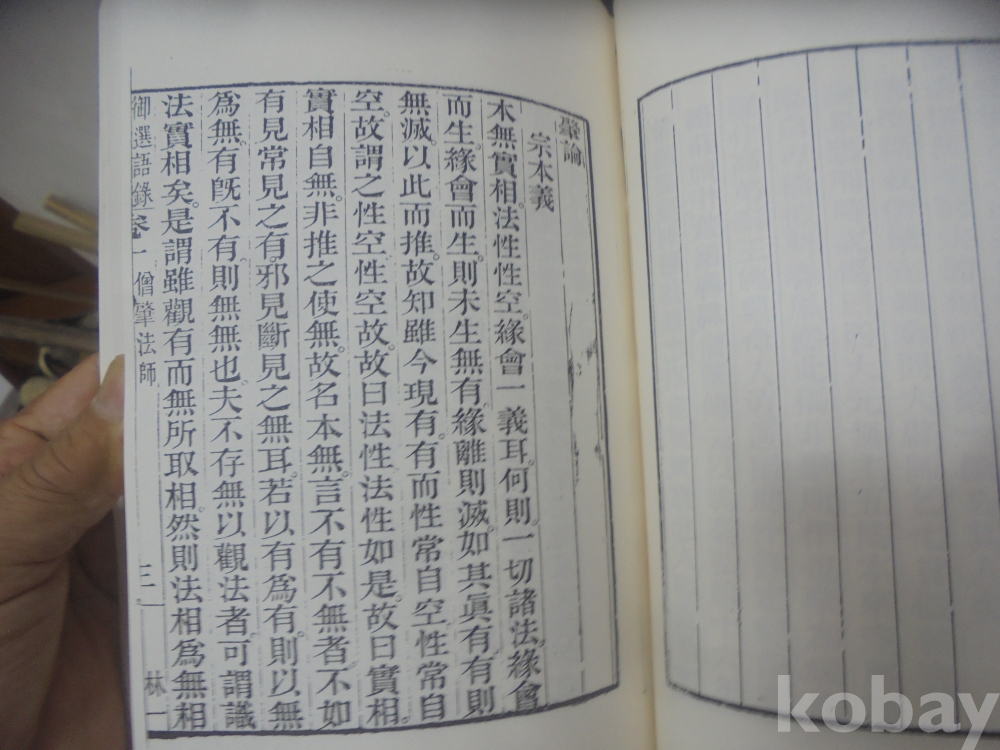 肇論
宗本義
本無實相。法性性空。緣會一義耳。何則。一切諸法。緣會
而生。緣會而生。則未生無有。緣離則滅。如其眞有。有則
無滅。以此而推。故知雖今現有。有而性常自空。性常自
空。故謂之性空。性空故。故曰法性。法性如是。故曰實相。
實相自無。非推之使無。故名本無。言不有不無者。不如
有見常見之有。邪見斷見之無耳。若以有爲有。則以無
爲無。有旣不有。則無無也。夫不存無以觀法者。可謂識
法實相矣。是謂雖觀有而無所取相。然則法相爲無相
御選語錄卷一 僧肇法師 三 林一
kobay